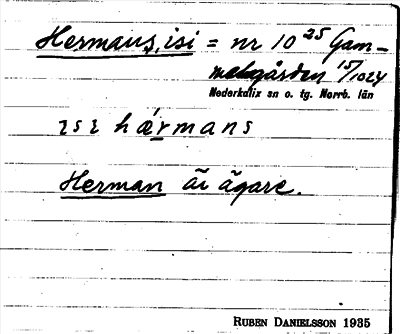 Hermans, isi = nr 10 25 Gam-
melgården 15/1024
Nederkalix sn o. tg. Norrb. län
ɩsɩ hærmans
Herman är ägare.
RUBEN DANIELSSON 1935